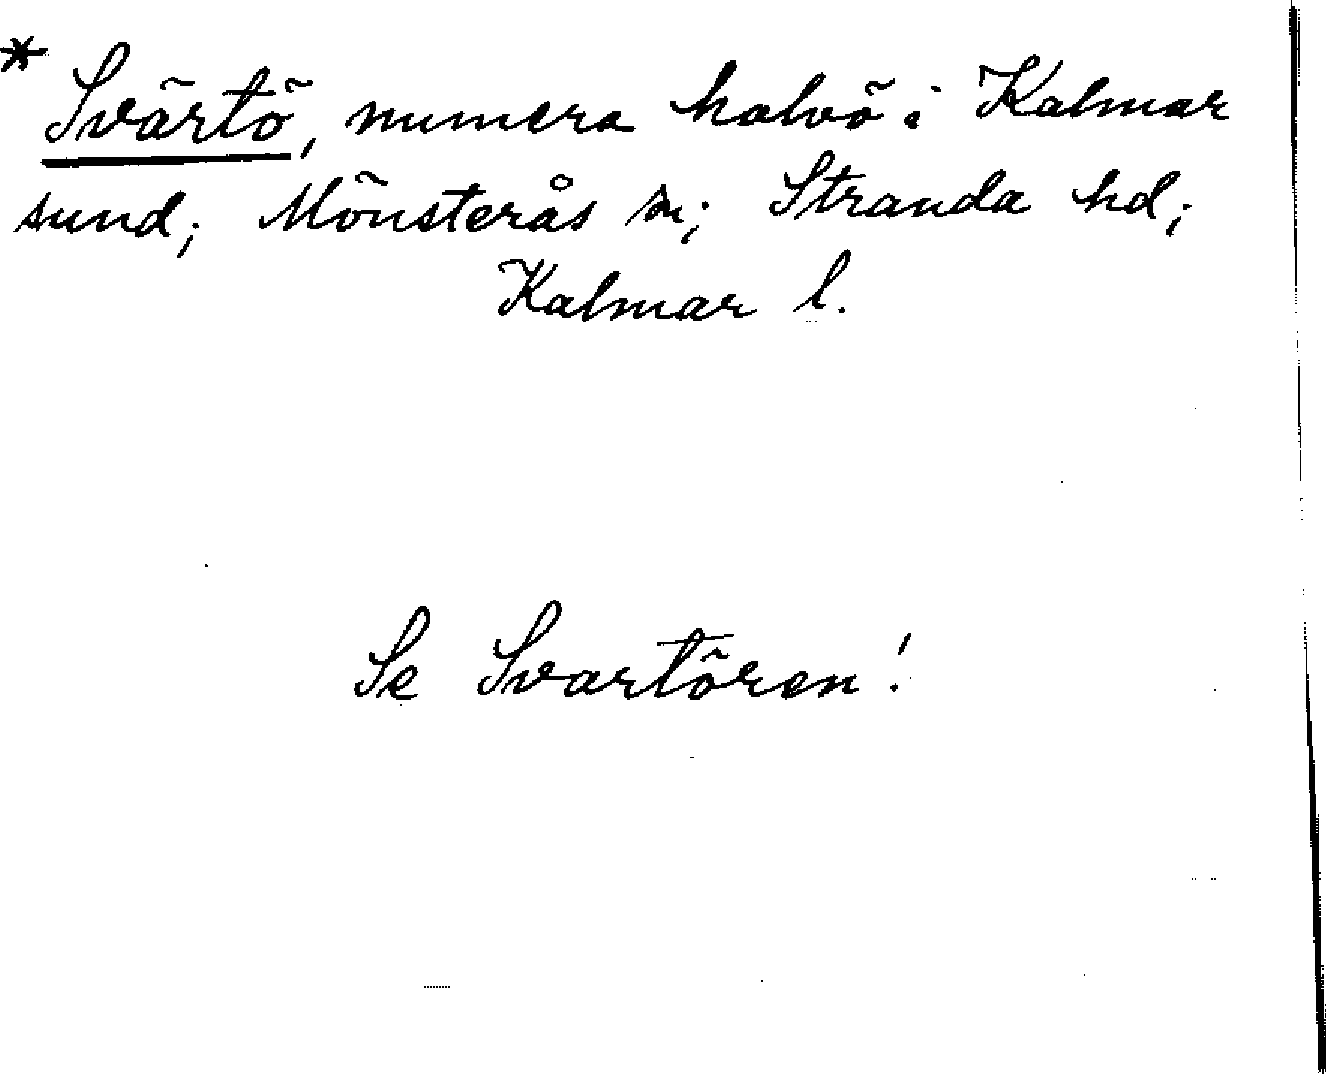 * Svärtö, numera halvö i Kalmar
sund; Mönsterås sn; Stranda hd;
Kalmar l.
Se Svartören!